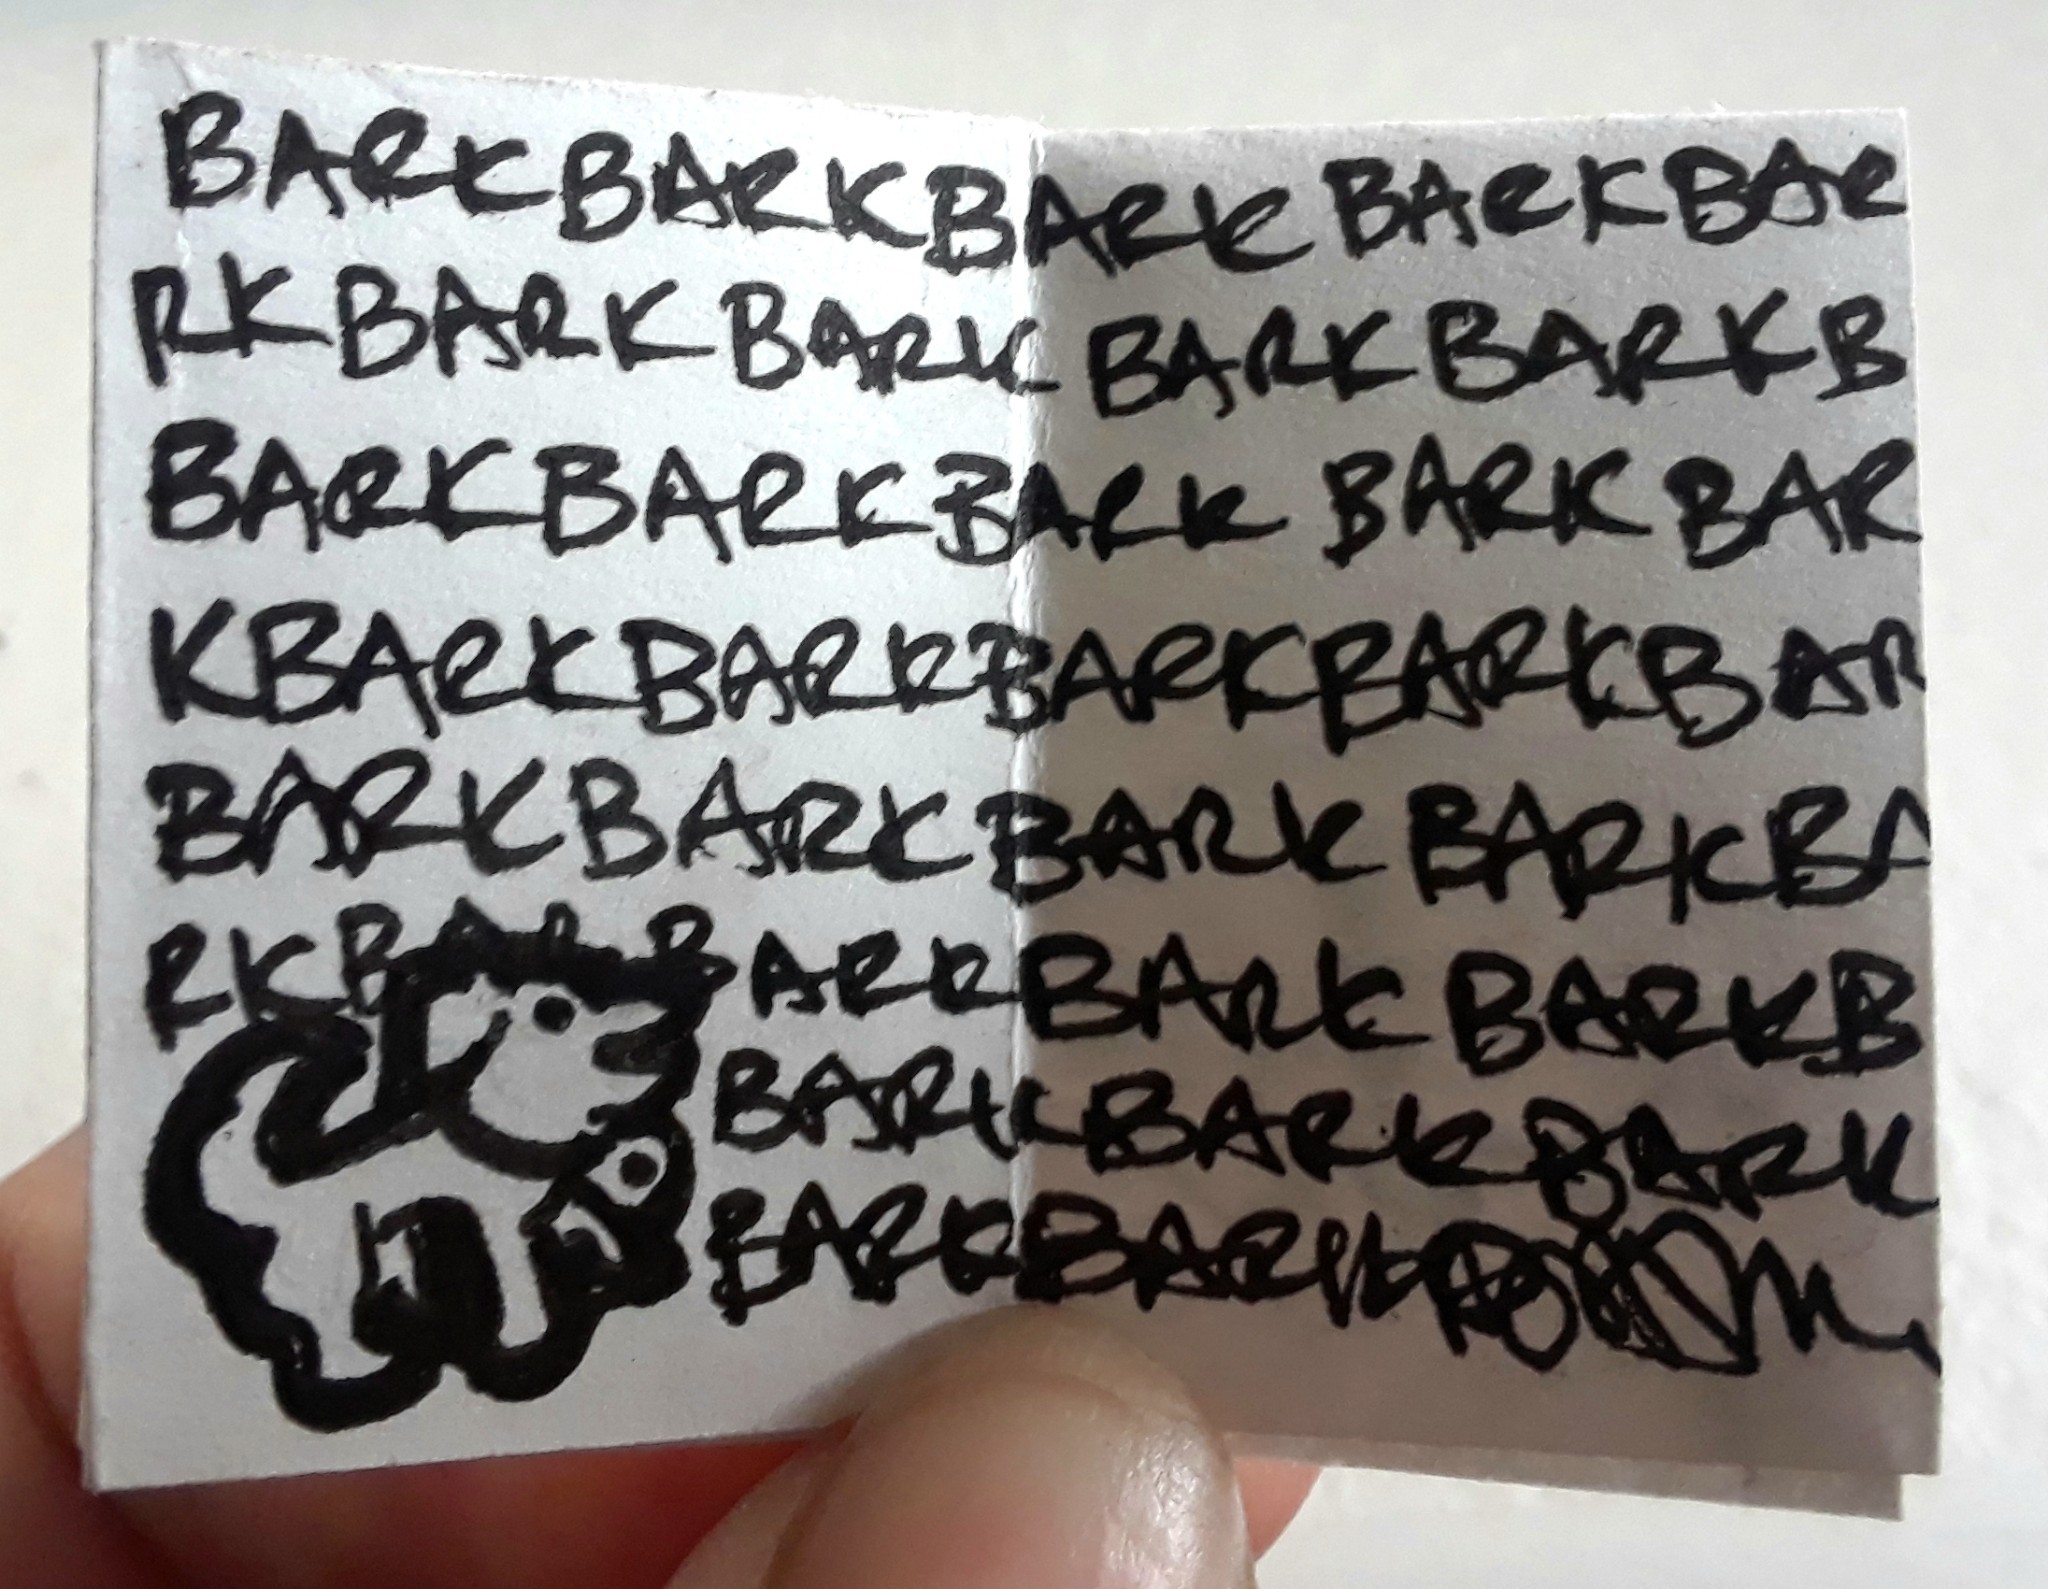 BARKBARKBARK BARKBAR
RKBARK BARK BARK BARKB
BARKBARKBARK BARK BAR
KBARKBARKBARKBARKBAR
BARKBARKBARK BARKBA
RKBAR BARKBARK BARKB
BARKBARKBARK
BARKBARK